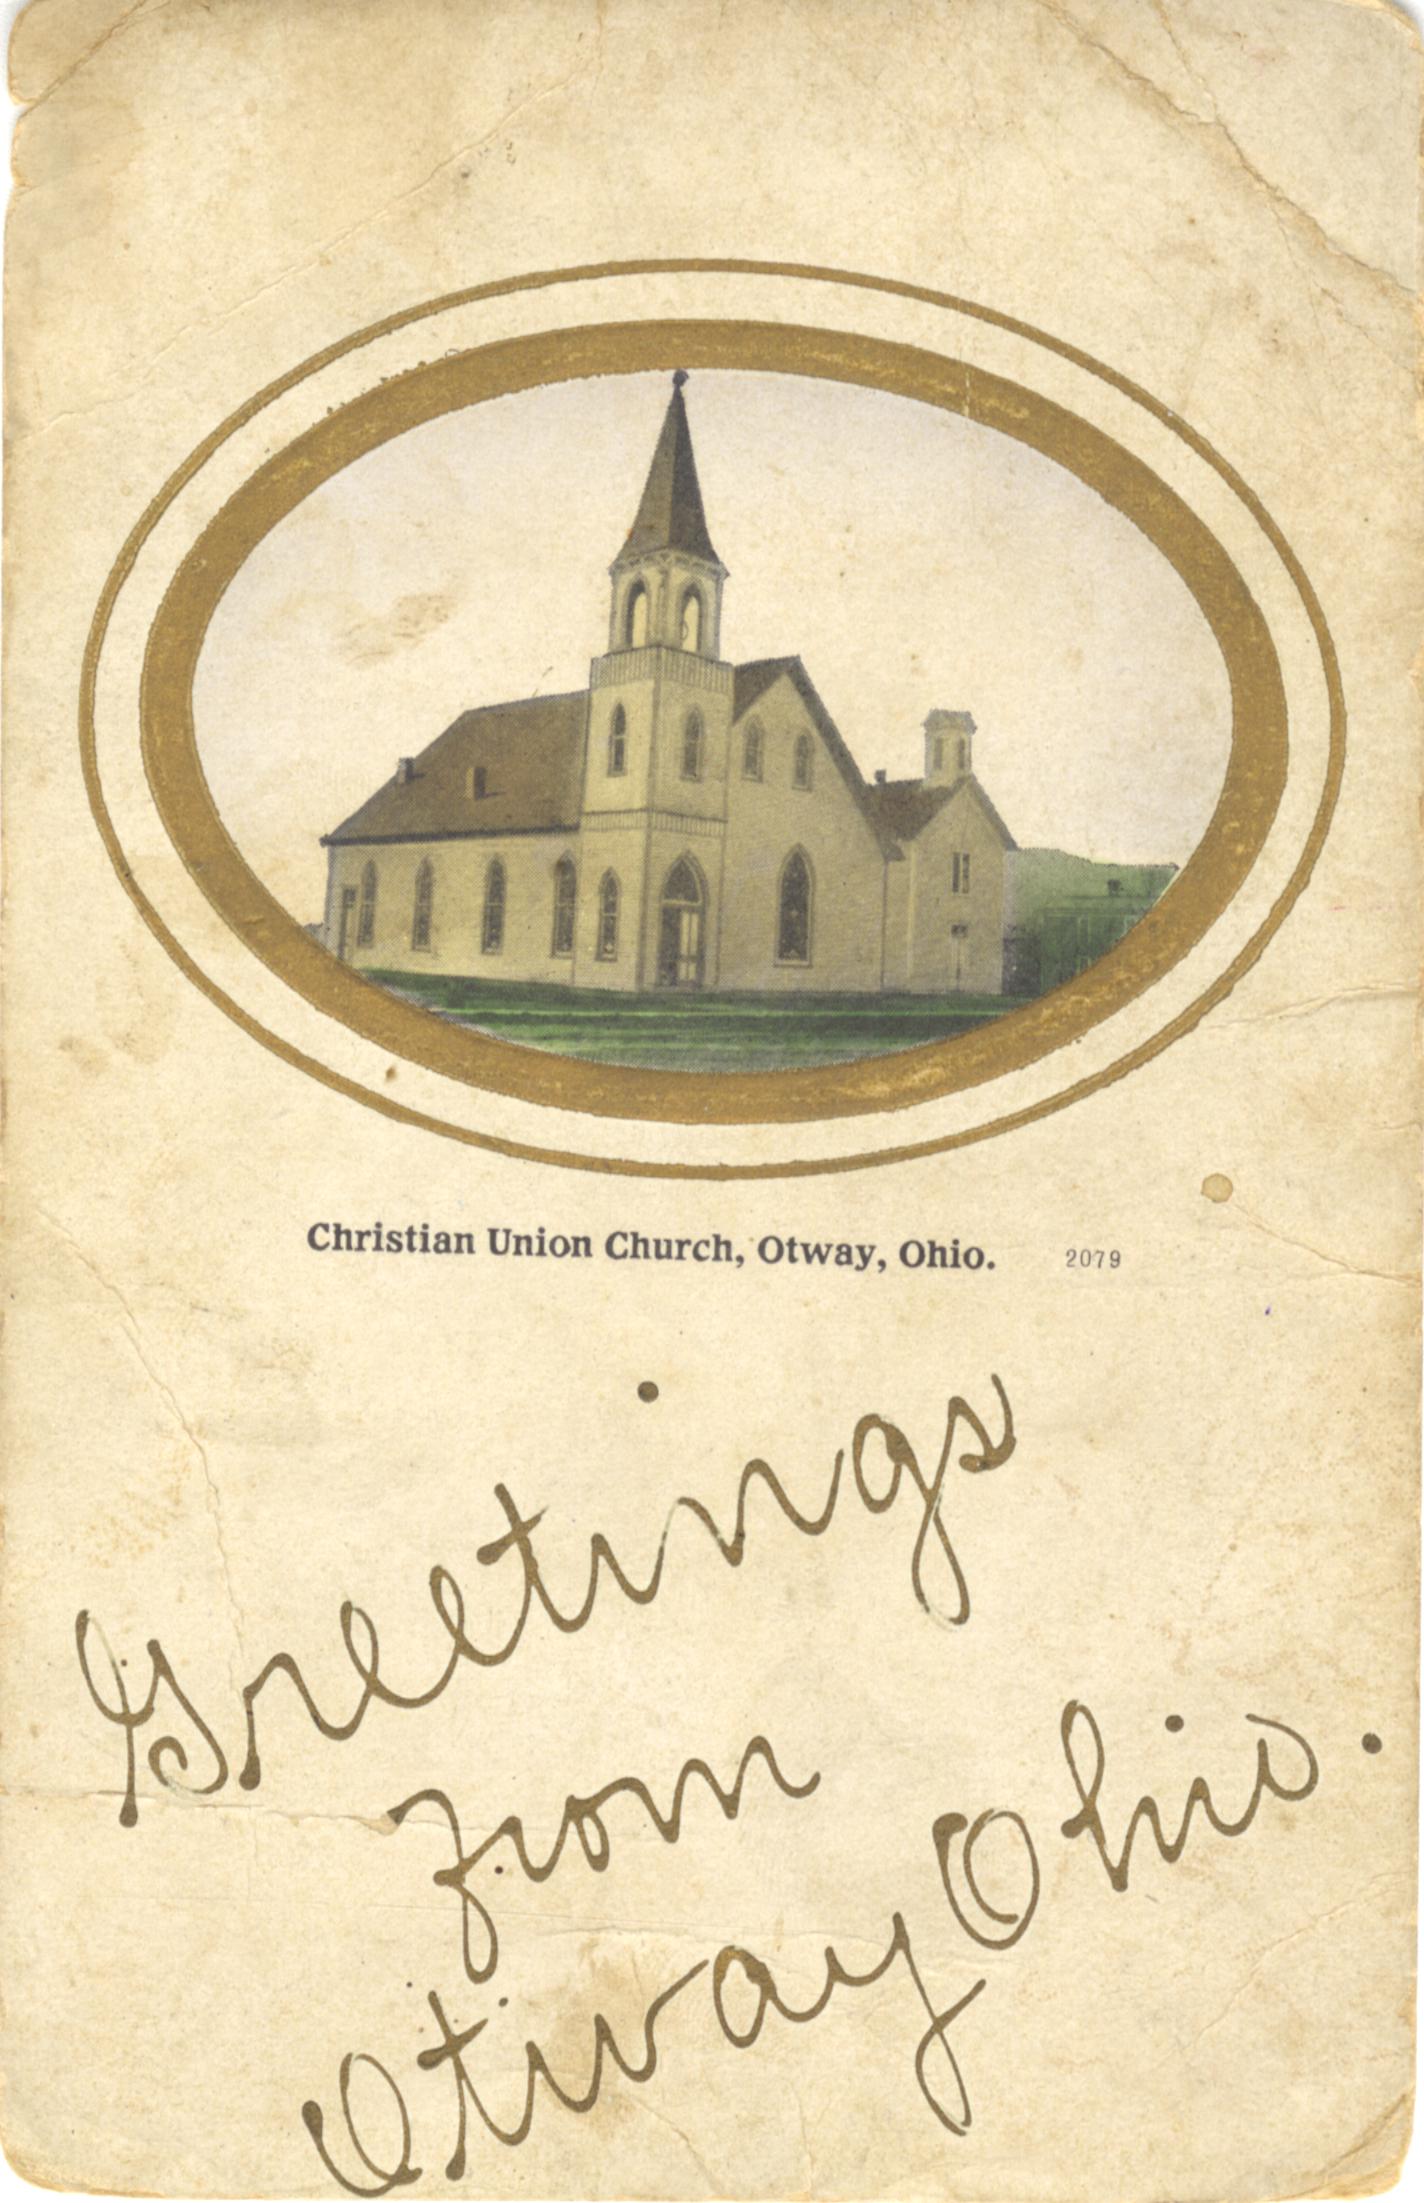 Christian Union Church, Otway, Ohio. 2079
Greetings
from
Otway Ohio.